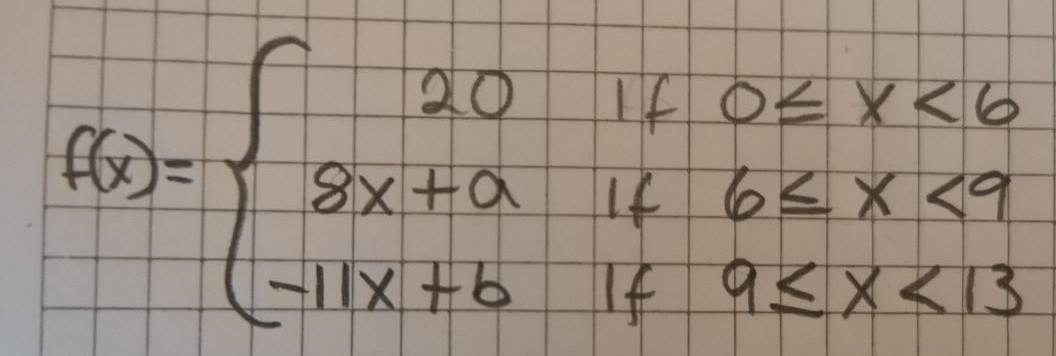 20 if 0 ≤ x < 6
f(x) = { 8x + a if 6 ≤ x < 9
-11x + b if 9 ≤ x < 13